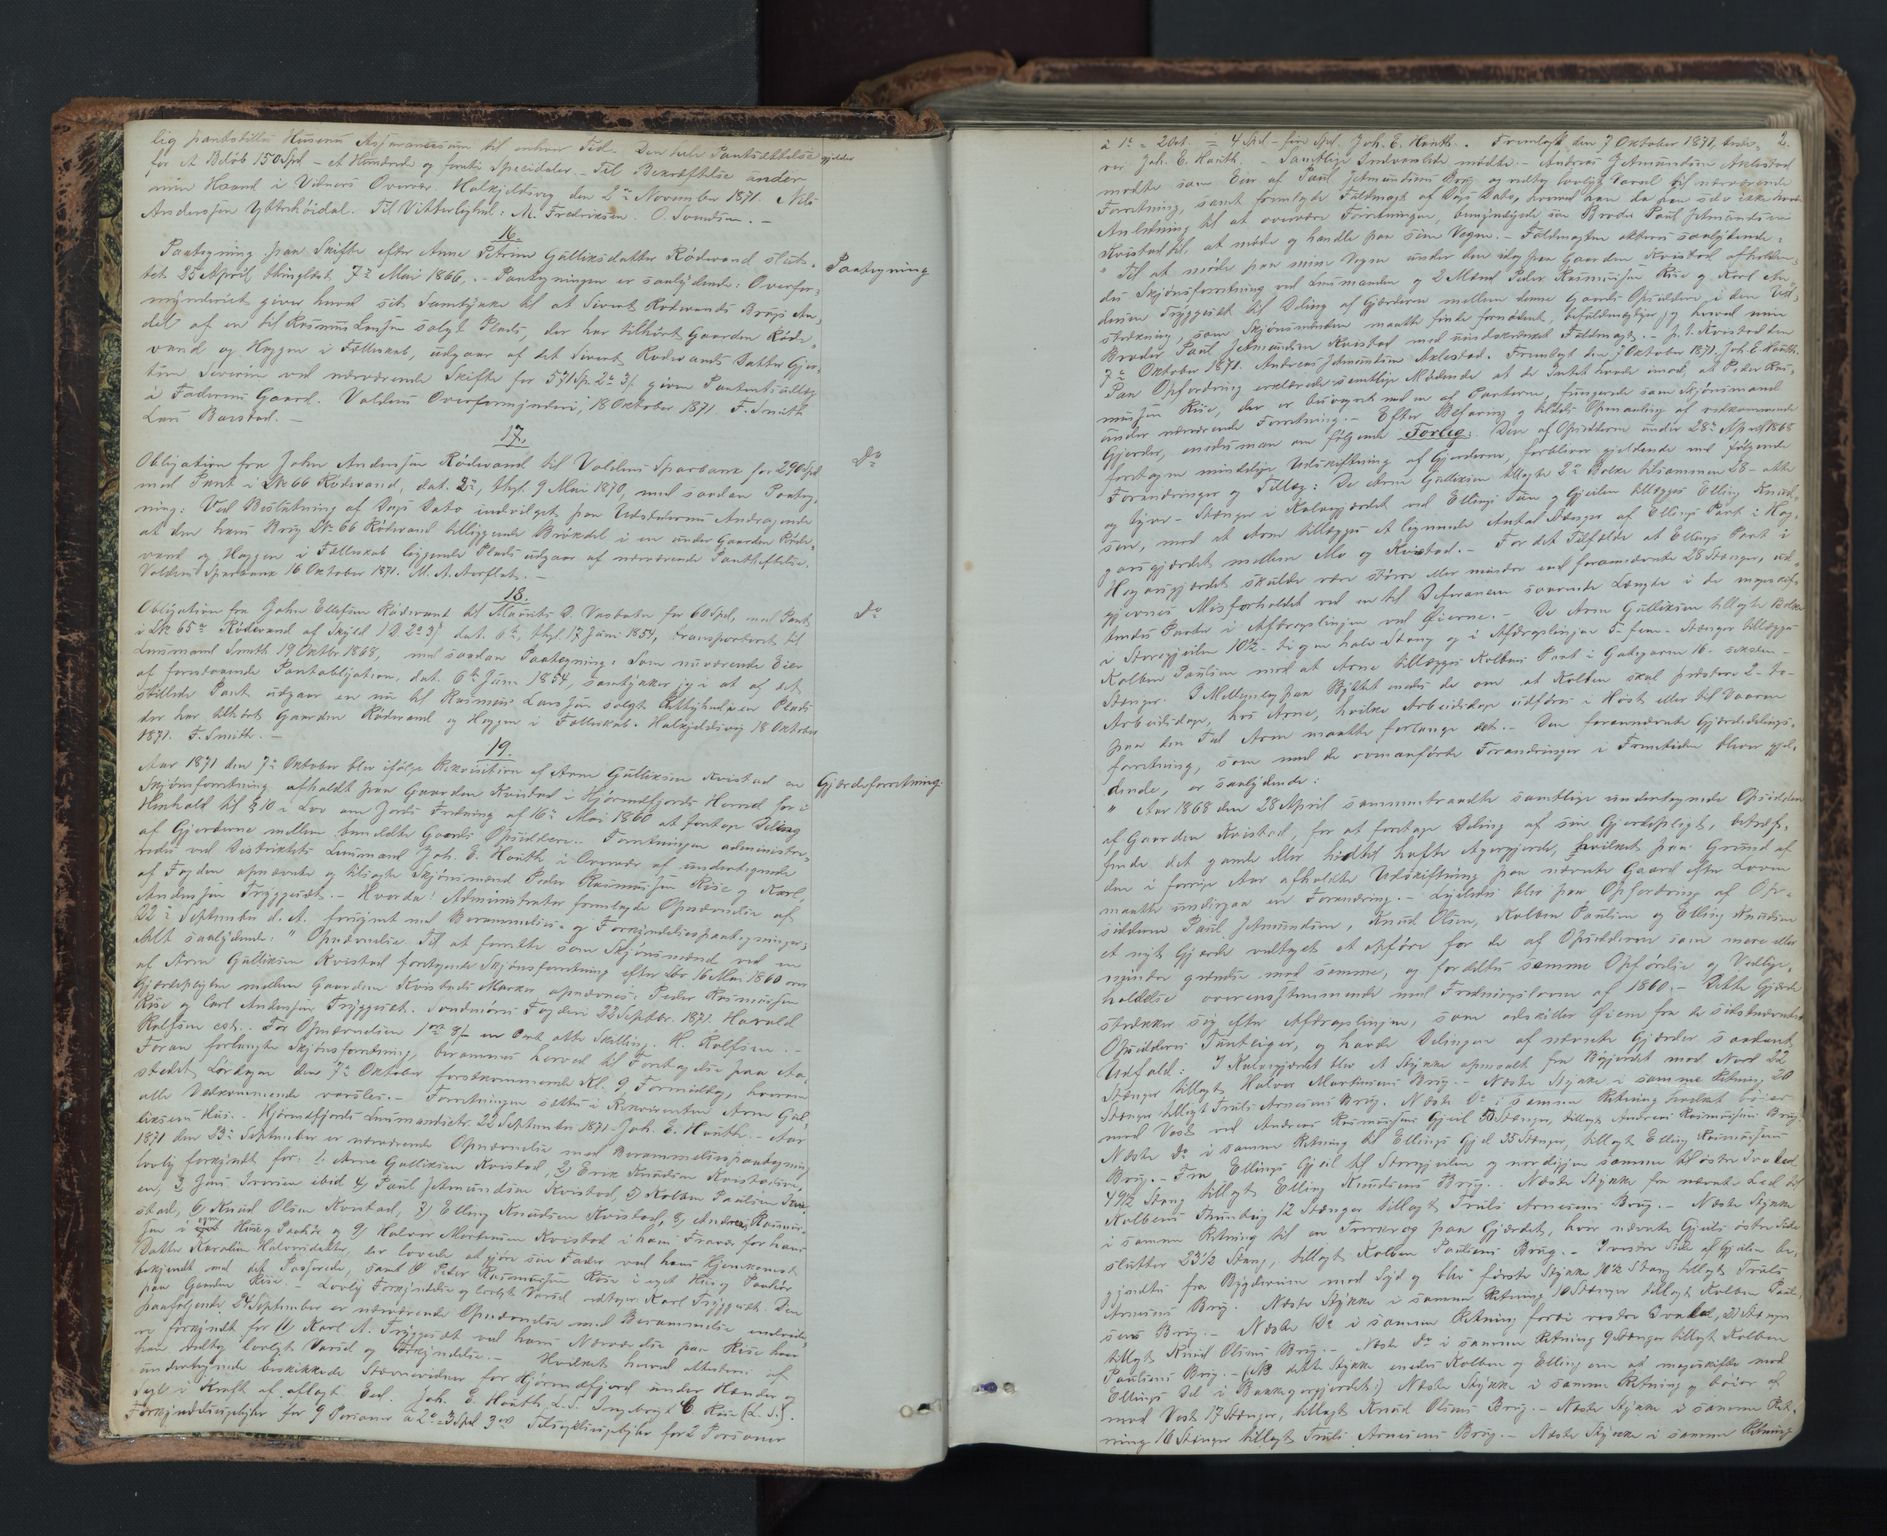 lig pantstilles Husenes Assurancesum til enhver Tid. Den hele Pantsættelse gjelder
for et Beløb 150 Spd - et Hundrede og femti Specidaler. - Til Bekræftelse under
min Haand i Vidners Overvær. Halkjeldsvig den 2den November 1871. Nils
Anderssen Ytterhøidal. Til Vitterlighed: M. Fredriksen. O. Svendsen. -
16.
Paategning paa Skifte efter Anne Petrine Gulliksdatter Rødevand slut-
tet 25 April, thinglæst 7de Mai 1866. - Paategningen er saalydende: Overfor-
mynderiet giver herved sit Samtykke til at Sivert Rødevands Brugs An-
del af en til Rasmus Larssen solgt Plads, der har tilhørt Gaarden Røde-
vand og Heggen i Fælleskab, udgaar af det Sivert Rødevands Datter Gjer-
tine Severine ved nærværende Skifte for 571 Sp. 2 3 s. givne Panteudlæg
i Faderens Gaard. Voldens Overformynderi, 18 Oktober 1871. F. Smith
Lars Barstad. -
Paategning
17.
Obligation fra John Anderssen Rødevand til Voldens Sparbank for 290 Spd
med Pant i L No 66 Rødevand, dat. 2, thgl. 9 Mai 1870, med saadan Paateg-
ning: Ved Beslutning af Dags Dato indvilget paa Udstederens Andragende
at den hans Brug L No 66 Rødevand tilliggende Brøkdel i en under Gaarden Røde-
vand og Heggen i Fælleskab liggende Plads udgaar af nærværende Pantheftelse.
Voldens Sparbank 16 Oktober 1871. M. A. Aarflot. -
Do
18.
Obligation fra John Ellefsen Rødevand til Marits D. Vasbotn for 60 Spd, med Pant
i L No 65 Rødevand af Skyld 1 D 2 3 s dat. 6te, thgl. 17 Juni 1854, transporteret til
Lensmand Smith 19 Oktbr. 1868, med saadan Paategning: Som nuværende Eier
af foranstaaende Pantobligation, dat. 6te Juni 1854, samtykker jeg i at af det
stillede Pant udgaar en nu til Rasmus Larssen solgt Plads
der har tilhørt Gaarden Rødevand og Heggen i Fælleskab. Halkjeldsvig 18 Oktober
1871. F. Smith. -
Do
19.
Aar 1871 den 7de Oktober blev ifølge Rekvisition af Arne Gulliksen Kvistad en
Skjønsforretning afholdt paa Gaarden Kvistad i Hjørendfjords Herred for i
Henhold til § 10 i Lov om Jords Fredning af 16de Mai 1860 at foretage Deling
af Gjerderne mellem bemeldte Gaards Opsiddere. Forretningen administre-
redes ved Distriktets Lensmand Joh. E. Houth i Overvær af undertegnede
af Fogden opnævnte og tilsagte Skjønsmænd Peder Rasmussen Riise og Karl
Anderssen Tryggestad. - Hvorda: Administrator fremlagde Opnævnelse af
22de September d. A. forsynet med Berammelses- og Forkyndelsespaategninger
Alt saalydende: "Opnævnelse Til at forrette som Skjønsmænd ved en
af Arne Gulliksen Kvistad forlangende Skjønsforretning efter Lov 16 Mai 1860 om
Gjerdepligten mellem Gaarden Kvistads Marker opnævnes: Peder Rasmussen
Riise og Carl Anderssen Tryggestad. Søndmørs Fogderi 22 Septbr. 1871. Harald
Rolfsen cst. - For Opnævnelsen 1 ort 8 s - en Ort otte Skilling. H. Rolfsen. -
Foran forlangte Skjønsforretning, berammes herved til Foretagelse paa Aa-
stedet Lørdagen den 7de Oktober førstkommende Kl. 9 Formiddag, hvorom
alle Vedkommende varsles. - Forretningen sættes i Rekvirenten Arne Gul-
liksens Hus. - Hjørendfjords Lensmandsstr. 22 September 1871 - Joh. E. Houth. - Aar
1871 den 23de September er nærværende Opnævnelse med Berammelsespaategning
lovlig forkyndt for: 1. Arne Gulliksen Kvistad, 2) Erik Knudsen Kvistad
3) Jens Iversen ibid 4) Paul Jetmundsen Kvistad, 5) Kolben Paulsen Kvi-
stad, 6) Knud Olsen Kvistad, 7) Elling Knudsen Kvistad, 8) Andreas Rasmus-
sen i eget Hus og Paahør og 9) Halvor Martinsen Kvistad i hans Fravær for hans
Datter Karoline Halvorsdatter, der lovede at gjøre sin Fader ved hans Hjemkomst
bekjendt med det Passerede, samt Peder Rasmussen Riise i eget Hus og Paahør
paa Gaarden Riise. - Lovlig Forkyndelse og lovligt Varsel vedtages. Karl Tryggestad. Den
paafølgende 24 September er nærværende Opnævnelse med Berammelse
forkyndt for 11) Karl A. Tryggestad ved hans Nærværelse paa Riise
lovligt Varsel og Forkyndelse. - Hvilket herved attesteres af
undertegnede beskikkede Stævnevidner for Hjørendfjord under Hænder og
Segl i Kraft af aflagt Eed. Joh. E. Houth, L.S. Ingebrigt Riise (L.S.).
Forkyndelsespenger for 9 Personer a 2 = 3 Spd 3 ort Tilsigelsespenger for 2 Personer
Gjærdeforretning
2.
a 1 = 2 Ort. = 4 Spd - fire Spd. Joh. E. Houth. Fremlagt den 7 Oktober 1871,
Joh. E. Houth. - Samtlige Indvarslede mødte. - Andreas Jetmundsen Aklestad
mødte som Eier af Paul Jetmundsens Brug og vedtog lovligt Varsel til nærværende
Forretning, samt fremlagde Fuldmagt af Dags Dato, hvorved han da han selv ikke havde
Anledning til at overvære Forretningen, bemyndigede sin Broder Paul Jetmundsen
Kvistad til at møde og handle paa sine Vegne. - Fuldmagten akteres saalydende:
" Til at møde paa mine Vegne under den idag paa Gaarden Kvistad afholden-
des Skjønsforretning ved Lensmanden og 2 Mænd Peder Rasmussen Riise og Karl An-
dersen Tryggestad til Deling af Gjerderne mellem denne Gaards Opsiddere, i den Ud-
strækning som Skjønsmænden maatte finde fornødent, befuldmægtiger jeg herved min
Broder Paul Jetmundsen Kvistad med uindskrænket Fuldmagt. - p. t. Kvistad den
7de Oktober 1871. Andreas Jetmundsen Aklestad. Fremlagt den 7 Oktober 1871. Joh. E. Houth.
Paa Opfordring erklærede samtlige Mødende at de Intet havde imod, at Peder Ras-
mussen Riise, der er besvogret med en af Parterne, fungerede som Skjønsmand
under nærværende Forretning. - Efter Befaring og tildels Opmaaling af vedkommende
Gjerder, enedes man om følgende Forlig: Den af Opsidderne under 28de April 1868
foretagne mindelige Udskiftning af Gjerderne, forbliver gjeldende med følgende
Forandringer og Tillæg: De Arne Gulliksen tillagte 2de Bolke tilsammen 28 - otte
og tyve - Stænger i Kalvegjærdet ved Ellings Tun og Gjeilen tillægges Elling Knud-
sen, mod at Arne tillægges et lignende Antal Stænger af Ellings Part i Hag-
gaasgjærdet mellem Mo og Kvistad. - For det Tilfælde at Ellings Part i
Hoggaasgjærdet skulde være større eller mindre end forannævnte 28 Stænger, ud-
gjevnes Misforholdet ved en til Differansen svarende Længde i de mageskif-
tendes Parter i Afdragslinjen ved Øierne. - De Arne Gulliksen tillagte Bolke
i Storegjeilen 10½ - ti og en halv Stang og i Afdragslinjen 5 - fem - Stænger tillægges
Kolben Paulsen mod at Arne tillægges Kolbens Part i 16 - seksten -
Stænger. I Mellemlag paa Byttet enedes de om at Kolben skal præstere 2 - to -
Arbeidsdage, hos Arne, hvilke Arbeidsdage udføres i Høst eller til Vaaren
paa den Tid Arne maatte forlange det. - Den forannævnte Gjærdedelings-
forretning, som med de ovenanførte Forandringer i Fremtiden bliver gjel-
dende, er saalydende:
" Aar 1868 den 28 April sammentraadte samtlige undertegnede Opsiddere
af Gaarden Kvistad, for at foretage Deling af sin Gjerdepligt, betræf-
fende det gamle eller hidtil havte Agergjerde, hvilket paa Grund af
den i forrige Aar afholdte Udskiftning paa nævnte Gaard efter Loven
maatte undergaa en Forandring. - Ligeledes blev paa Opfordring af Op-
sidderne Paul Jetmundsen, Knud Olsen, Kolben Paulsen og Elling Knudsen
et nyt Gjerde vedtaget at opføre for de af Opsidderne som mere eller
mindre grændse mod samme, og fordeltes samme Opførelse og Vedlige-
holdelse overensstemmende med Fredningsloven af 1860. - Dette Gjerde
strækker sig efter Afdragslinjen, som adskiller Øiene fra de sidstnævnte
Opsidderes Tunteiger, og havde Delingen af nævnte Gjerder saadant
Udfald: I Kalvegjærdet blev et Stykke opmaalt fra Bøgjerdet mod Nord 22
Stænger tillagt Halvor Martinsens Brug. - Næste Stykke i samme Retning 20
Stænger tillagt Truls Arnesens Brug. Næste Do i samme Retning hvilket bøier
mod Vest ved Andreas Rasmussens Gjeil Stænger, tillagt Andreas Rasmussens Brug.
Næste Do i samme Retning til Ellings Gjeil 35 Stænger, tillagt Elling Rasmussens
Brug. - Fra Ellings Gjeil til Storegjeilen og nordigjen samme til østre
49½ Stang tillagt Elling Knudsens Brug. - Næste Stykke fra nævnte Led til
Kolbens 12 Stænger tillagt Truls Arnesens Brug. - Næste Stykke
i samme Retning til en paa Gjærdet, hvor nævnte Gjeils østre Side
slutter 23½ Stang, tillagt Kolben Paulsens Brug. - I vestre Side af Gjeilen be-
gyndtes fra Bygderveien mod Syd og blev første Stykke 10½ Stang tillagt Truls
Arnesens Brug. Næste Stykke i samme Retning 10 Stænger tillagt Kolben Paul-
sens Brug. - Næste Do i samme Retning forbi vestre 21 Stænger
tillagt Knud Olsens Brug. - Næste Do i samme Retning 9 Stænger tillagt Kolben
Paulsens Brug. - (NB dette Stykke enedes Kolben og Elling om at mageskifte med
Ellings Del i Bakkegjerdet;) Næste Stykke i samme Retning og bøier af
mod Vest 17 Stænger, tillagt Knud Olsens Brug. - Næste Stykke i samme Ret-
ning 16 Stænger tillagt Truls Arnesens Brug. - Næste Stykke i samme Retning